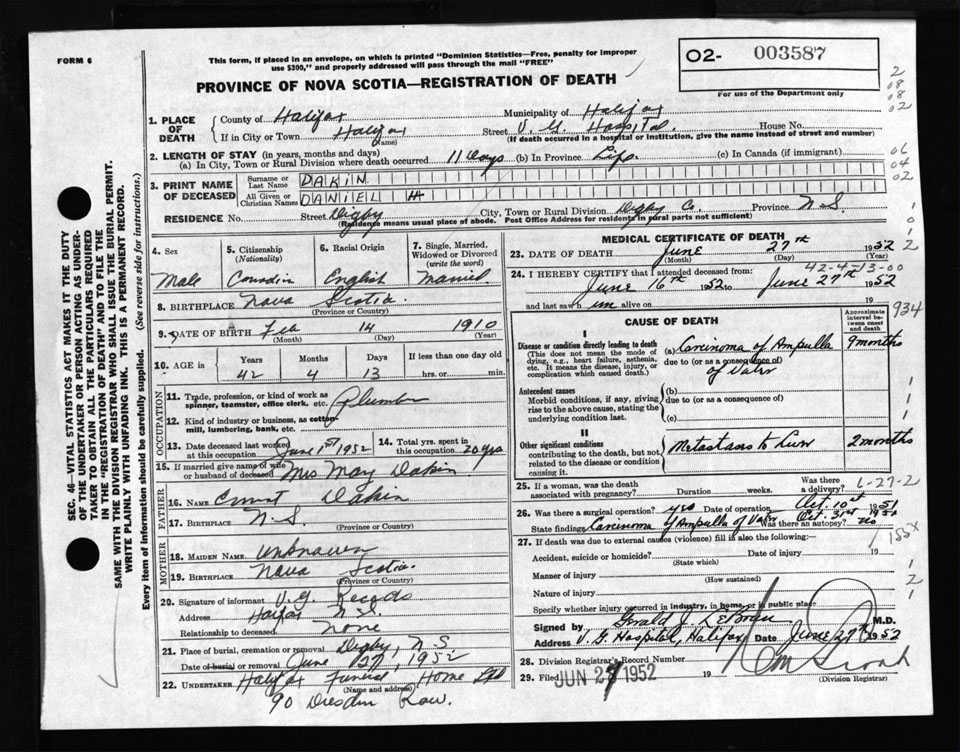 FORM 6
This form, if placed in an envelope, on which is printed "Dominion Statistics—Free, penalty for improper
use $300," and properly addressed will pass through the mail "FREE"
PROVINCE OF NOVA SCOTIA—REGISTRATION OF DEATH
02- 003587
For use of the Department only
2
08
08
02
06
04
02
SEC. 46—VITAL STATISTICS ACT MAKES IT THE DUTY
OF THE UNDERTAKER OR PERSON ACTING AS UNDER-
TAKER TO OBTAIN ALL THE PARTICULARS REQUIRED
IN THE "REGISTRATION OF DEATH" AND TO FILE THE
SAME WITH THE DIVISION REGISTRAR WHO SHALL ISSUE THE BURIAL PERMIT.
WRITE PLAINLY WITH UNFADING INK. THIS IS A PERMANENT RECORD.
Every item of information should be carefully supplied. (See reverse side for instructions.)
1. PLACE OF DEATH
County of Halifax Municipality of Halifax
If in City or Town Halifax (Name) Street V. G. Hospital House No.
(If death occurred in a hospital or institution, give the name instead of street and number)
2. LENGTH OF STAY (in years, months and days)
(a) In City, Town or Rural Division where death occurred 11 Days (b) In Province Life (c) In Canada (if immigrant)
3. PRINT NAME OF DECEASED
Surname or Last Name DAKIN
All Given or Christian Names DANIEL H
RESIDENCE No. Street Digby City, Town or Rural Division Digby Co. Province N.S.
(Residence means usual place of abode. Post Office Address for residents in rural parts not sufficient)
4. Sex Male
5. Citizenship (Nationality) Canadin
6. Racial Origin English
7. Single, Married, Widowed or Divorced (write the word) Married
8. BIRTHPLACE Nova Scotia
(Province or Country)
9. DATE OF BIRTH Feb 14 1910
(Month) (Day) (Year)
10. AGE in Years 42 Months 4 Days 13 If less than one day old hrs. or min.
OCCUPATION
11. Trade, profession, or kind of work as spinner, teamster, office clerk, etc. Plumber
12. Kind of industry or business, as cotton mill, lumbering, bank, etc.
13. Date deceased last worked at this occupation June 1st 1952
14. Total yrs. spent in this occupation 20 yrs
15. If married give name of wife or husband of deceased Mrs May Dakin
FATHER
16. NAME Ernest Dakin
17. BIRTHPLACE N.S.
(Province or Country)
MOTHER
18. MAIDEN NAME Unknown
19. BIRTHPLACE Nova Scotia
(Province or Country)
20. Signature of informant V.G. Records
Address Halifax N.S.
Relationship to deceased None
21. Place of burial, cremation or removal Digby, N.S.
Date of burial or removal June 27, 1952
22. UNDERTAKER Halifax Funeral Home Ltd
(Name and address)
90 Dresden Row.
MEDICAL CERTIFICATE OF DEATH
23. DATE OF DEATH June 27th 1952
(Month) (Day) (Year)
42-4-13-00
24. I HEREBY CERTIFY that I attended deceased from:
June 16th 1952 to June 27th 1952
and last saw him alive on 19
934
CAUSE OF DEATH
Approximate interval between onset and death
I
Disease or condition directly leading to death
(This does not mean the mode of dying, e.g., heart failure, asthenia, etc. It means the disease, injury, or complication which caused death.)
(a) Carcinoma of Ampulla 9 months
due to (or as a consequence of)
of Vater
Antecedent causes
Morbid conditions, if any, giving rise to the above cause, stating the underlying condition last.
(b)
due to (or as a consequence of)
(c)
II
Other significant conditions contributing to the death, but not related to the disease or condition causing it.
Metastases to Liver 2 months
25. If a woman, was the death associated with pregnancy? Duration weeks. Was there a delivery? 6-27-2
26. Was there a surgical operation? yes Date of operation Oct. 10th 1951
Oct. 31st 1951
State findings Carcinoma of Ampulla of Vater Was there an autopsy? no
27. If death was due to external causes (violence) fill in also the following:—
155x
Accident, suicide or homicide? Date of injury 19
(State which)
Manner of injury
(How sustained)
Nature of injury
Specify whether injury occurred in industry, in home, or in public place
Signed by Gerald J. LeBrun M.D.
Address V. G. Hospital, Halifax Date June 27th 1952
28. Division Registrar's Record Number
29. Filed JUN 27 1952 19
(Division Registrar)